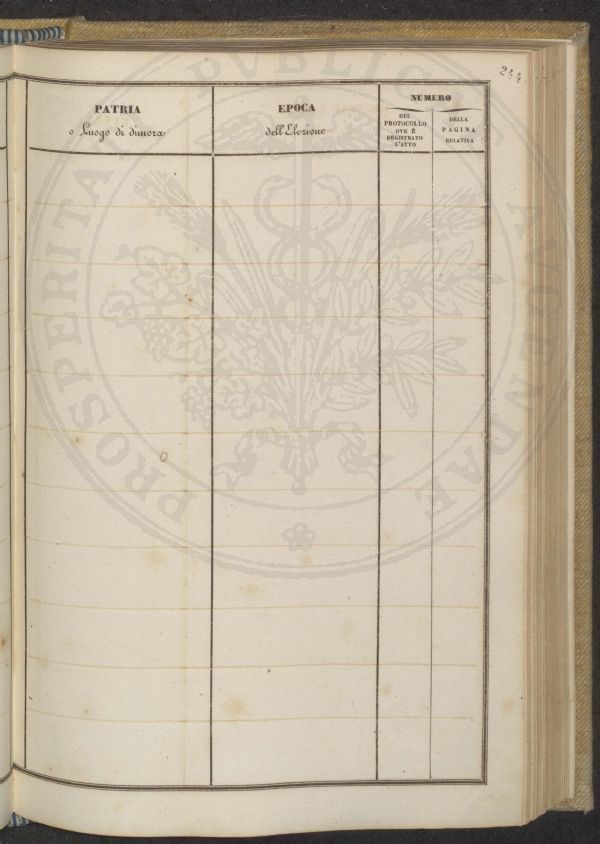 244
PATRIA
o Luogo di dimora
EPOCA
dell'Elezione
NUMERO
DEL
PROTOCOLLO
OVE È
REGISTRATO
L'ATTO
DELLA
PAGINA
RELATIVA
PROSPERITATI PUBLICAE AUGENDAE